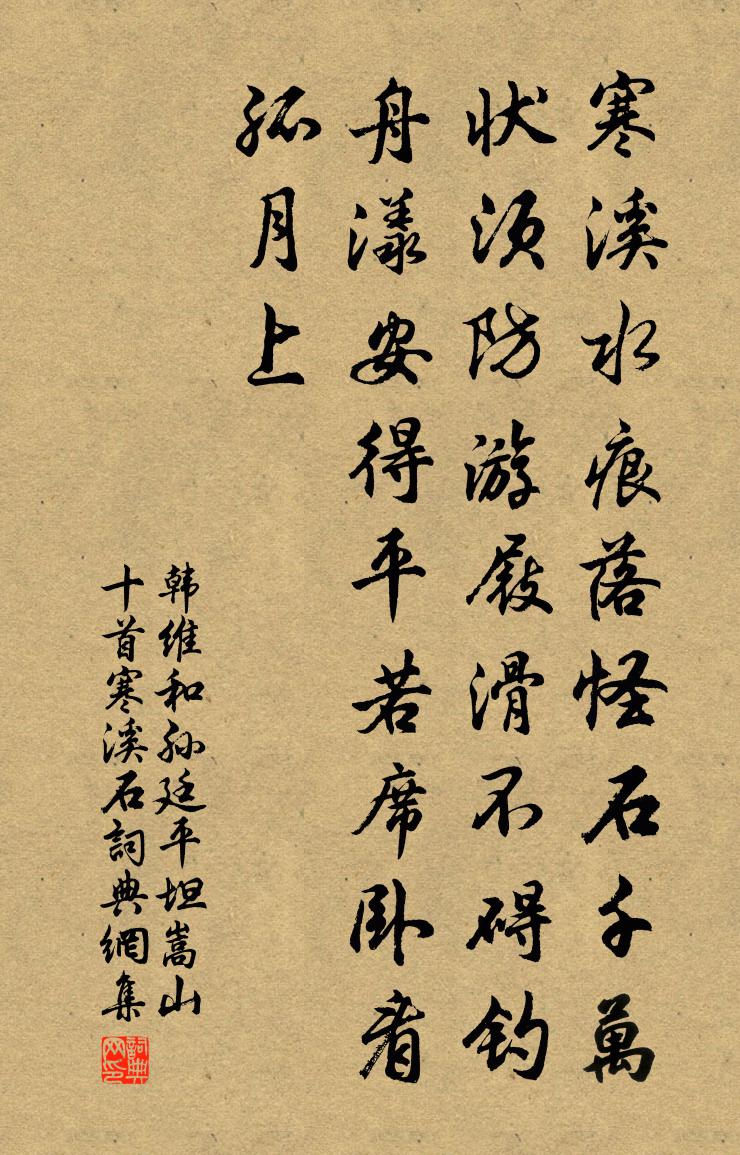 寒溪水痕落怪石千萬
状须防游屐滑不碍钓
舟漾安得平若席卧看
孤月上
韩维和孙廷平坦嵩山
十首寒溪石詞典網集
詞典网印